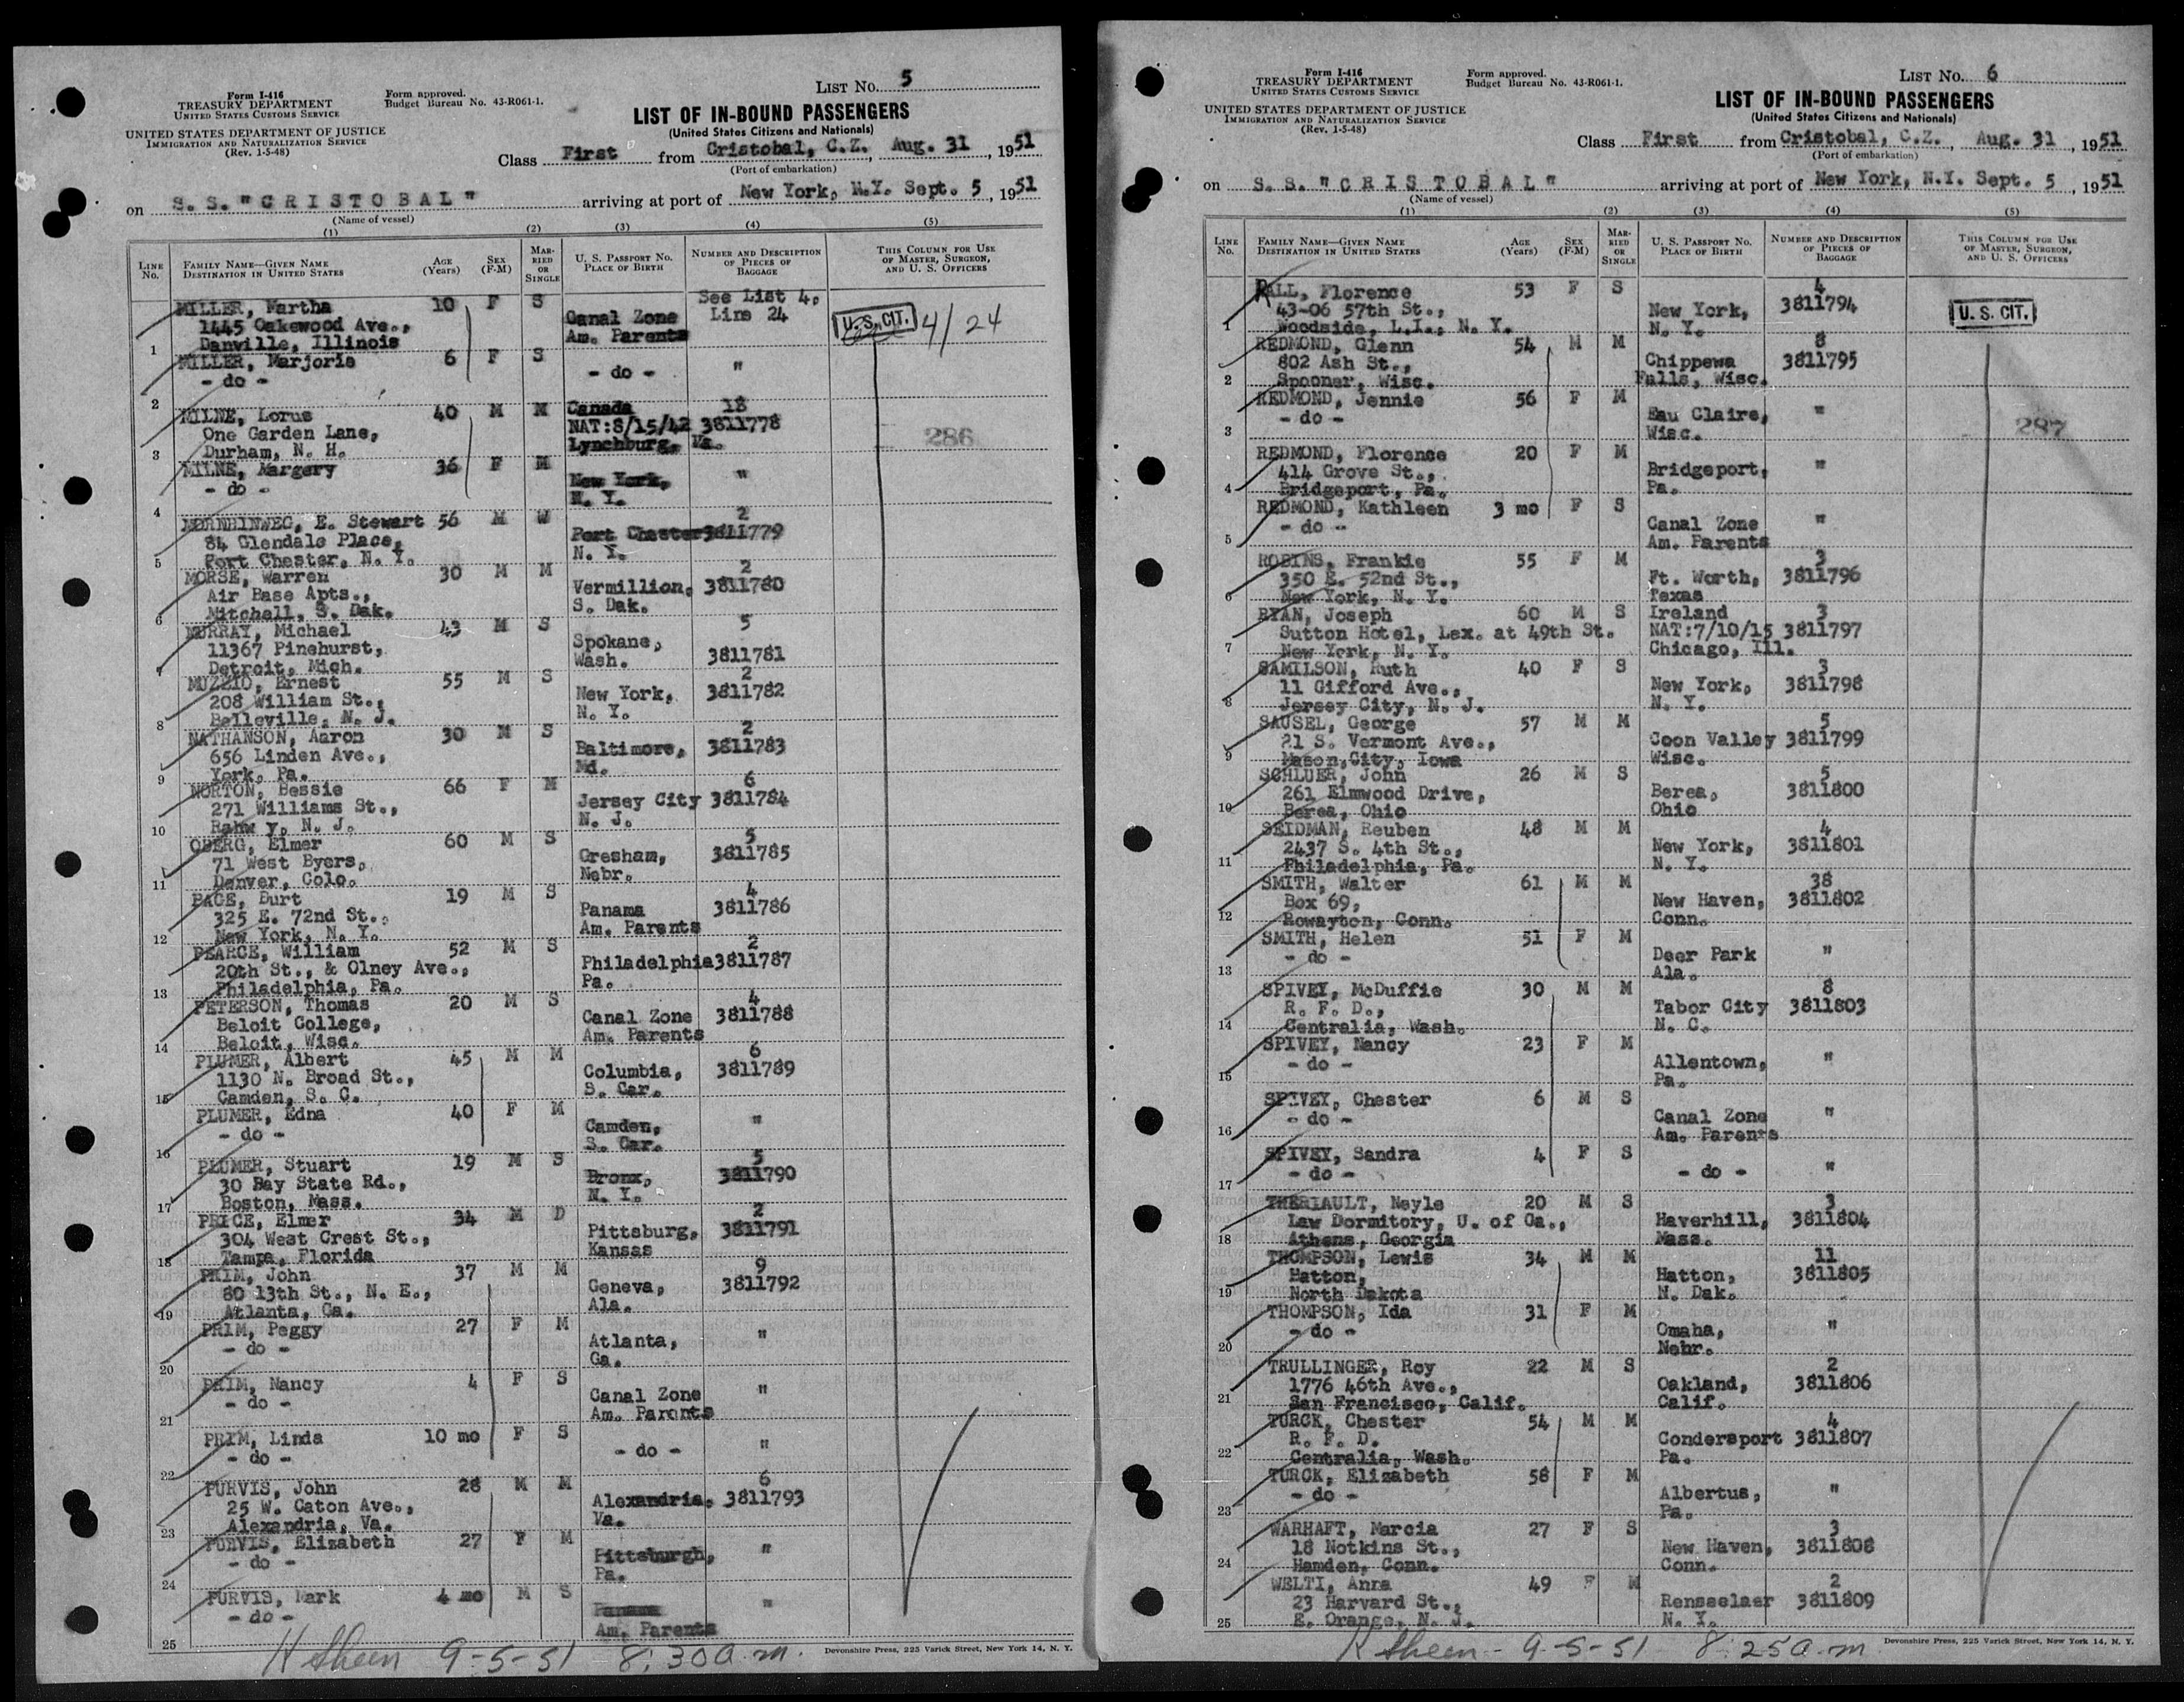 Form I-416
TREASURY DEPARTMENT
UNITED STATES CUSTOMS SERVICE
UNITED STATES DEPARTMENT OF JUSTICE
IMMIGRATION AND NATURALIZATION SERVICE
(Rev. 1-5-48)
Form approved.
Budget Bureau No. 43-R061-1.
LIST NO. 5
LIST OF IN-BOUND PASSENGERS
(United States Citizens and Nationals)
Class First from Cristobal, C.Z., Aug. 31, 1951
(Port of embarkation)
on S. S. "C R I S T O B A L" arriving at port of New York, N.Y. Sept. 5, 1951
(Name of vessel)
(1) (2) (3) (4) (5)
LINE No. FAMILY NAME—GIVEN NAME DESTINATION IN UNITED STATES AGE (Years) SEX (F-M) MARRIED OR SINGLE U. S. PASSPORT NO. PLACE OF BIRTH NUMBER AND DESCRIPTION OF PIECES OF BAGGAGE THIS COLUMN FOR USE OF MASTER, SURGEON, AND U. S. OFFICERS
MILLER, Martha 10 F S See List 4,
1445 Oakewood Ave., Canal Zone Line 24 U. S. CIT. 4/24
1 Danville, Illinois Am. Parents
MILLER, Marjorie 6 F S
- do - - do - "
2
MILNE, Lorus 40 M M Canada 18
One Garden Lane, NAT:8/15/42 3811778
3 Durham, N. H. Lynchburg, Va. 286
MILNE, Margery 36 F M New York, "
- do - N. Y.
4
MORNHINWEG, E. Stewart 56 M W 2
84 Glendale Place, Port Chester 3811779
5 Port Chester, N. Y. N. Y.
MORSE, Warren 30 M M 2
Air Base Apts., Vermillion, 3811780
6 Mitchell, S. Dak. S. Dak.
MURRAY, Michael 43 M S 5
11367 Pinehurst, Spokane,
7 Detroit, Mich. Wash. 3811781
MUZZIO, Ernest 55 M S 2
208 William St., New York, 3811782
8 Belleville, N. J. N. Y.
NATHANSON, Aaron 30 M S 2
656 Linden Ave., Baltimore, 3811783
9 York, Pa. Md.
NORTON, Bessie 66 F M 6
271 Williams St., Jersey City 3811784
10 Rahw y, N. J. N. J.
OBERG, Elmer 60 M S 5
71 West Byers, Gresham, 3811785
11 Denver, Colo. Nebr.
PAGE, Burt 19 M S 4
325 E. 72nd St., Panama 3811786
12 New York, N. Y. Am. Parents
PEARCE, William 52 M S 2
20th St., & Olney Ave., Philadelphia 3811787
13 Philadelphia, Pa. Pa.
PETERSON, Thomas 20 M S 4
Beloit College, Canal Zone 3811788
14 Beloit, Wisc. Am. Parents
PLUMER, Albert 45 M M 6
1130 N. Broad St., Columbia, 3811789
15 Camden, S. C. S. Car.
PLUMER, Edna 40 F M
- do - Camden, "
16 S. Car.
PLUMER, Stuart 19 M S 5
30 Bay State Rd., Bronx, 3811790
17 Boston, Mass. N. Y.
PRICE, Elmer 34 M D 2
304 West Crest St., Pittsburg, 3811791
18 Tampa, Florida Kansas
PRIM, John 37 M M 9
80 13th St., N. E., Geneva, 3811792
19 Atlanta, Ga. Ala.
PRIM, Peggy 27 F M
- do - Atlanta, "
20 Ga.
PRIM, Nancy 4 F S
- do - Canal Zone "
21 Am. Parents
PRIM, Linda 10 mo F S
- do - - do - "
22
PURVIS, John 28 M M 6
25 W. Caton Ave., Alexandria, 3811793
23 Alexandria, Va. Va.
PURVIS, Elizabeth 27 F M
- do - Pittsburgh, "
24 Pa.
PURVIS, Mark 4 mo M S
- do - Panama "
25 Am. Parents
Devonshire Press, 225 Varick Street, New York 14, N. Y.
9-5-51 8:30 a.m.
Form I-416
TREASURY DEPARTMENT
UNITED STATES CUSTOMS SERVICE
UNITED STATES DEPARTMENT OF JUSTICE
IMMIGRATION AND NATURALIZATION SERVICE
(Rev. 1-5-48)
Form approved.
Budget Bureau No. 43-R061-1.
LIST NO. 6
LIST OF IN-BOUND PASSENGERS
(United States Citizens and Nationals)
Class First from Cristobal, C.Z., Aug. 31, 1951
(Port of embarkation)
on S. S. "C R I S T O B A L" arriving at port of New York, N.Y. Sept. 5, 1951
(Name of vessel)
(1) (2) (3) (4) (5)
LINE No. FAMILY NAME—GIVEN NAME DESTINATION IN UNITED STATES AGE (Years) SEX (F-M) MARRIED OR SINGLE U. S. PASSPORT NO. PLACE OF BIRTH NUMBER AND DESCRIPTION OF PIECES OF BAGGAGE THIS COLUMN FOR USE OF MASTER, SURGEON, AND U. S. OFFICERS
RALL, Florence 53 F S 4
43-06 57th St., New York, 3811794
1 Woodside, L.I., N. Y. N. Y. U. S. CIT.
REDMOND, Glenn 54 M M 8
802 Ash St., Chippewa 3811795
2 Spooner, Wisc. Falls, Wisc.
REDMOND, Jennie 56 F M
- do - Eau Claire, "
3 Wisc. 287
REDMOND, Florence 20 F M
414 Grove St., Bridgeport, "
4 Bridgeport, Pa. Pa.
REDMOND, Kathleen 3 mo F S
- do - Canal Zone "
5 Am. Parents
ROBINS, Frankie 55 F M 3
350 E. 52nd St., Ft. Worth, 3811796
6 New York, N. Y. Texas
RYAN, Joseph 60 M S Ireland 3
Sutton Hotel, Lex. at 49th St. NAT:7/10/15 3811797
7 New York, N. Y. Chicago, Ill.
SAMILSON, Ruth 40 F S 3
11 Gifford Ave., New York, 3811798
8 Jersey City, N. J. N. Y.
SAUSEL, George 57 M M 5
21 S. Vermont Ave., Coon Valley 3811799
9 Mason City, Iowa Wisc.
SCHLUER, John 26 M S 5
261 Elmwood Drive, Berea, 3811800
10 Berea, Ohio Ohio
SEIDMAN, Reuben 48 M M 4
2437 S. 4th St., New York, 3811801
11 Philadelphia, Pa. N. Y.
SMITH, Walter 61 M M 38
Box 69, New Haven, 3811802
12 Rowayton, Conn. Conn.
SMITH, Helen 51 F M
- do - Deer Park "
13 Ala.
SPIVEY, McDuffie 30 M M 8
R. F. D., Tabor City 3811803
14 Centralia, Wash. N. C.
SPIVEY, Nancy 23 F M
- do - Allentown, "
15 Pa.
SPIVEY, Chester 6 M S
- do - Canal Zone "
16 Am. Parents
SPIVEY, Sandra 4 F S
- do - - do - "
17
THERIAULT, Neyle 20 M S 3
Law Dormitory, U. of Ga., Haverhill, 3811804
18 Athens, Georgia Mass.
THOMPSON, Lewis 34 M M 11
Hatton, Hatton, 3811805
19 North Dakota N. Dak.
THOMPSON, Ida 31 F M
- do - Omaha, "
20 Nebr.
TRULLINGER, Roy 22 M S 2
1776 46th Ave., Oakland, 3811806
21 San Francisco, Calif. Calif.
TURCK, Chester 54 M M 4
R. F. D. Condersport 3811807
22 Centralia, Wash. Pa.
TURCK, Elizabeth 58 F M
- do - Albertus, "
23 Pa.
WARHAFT, Marcia 27 F S 3
18 Notkins St., New Haven, 3811808
24 Hamden, Conn. Conn.
WELTI, Anna 49 F M 2
23 Harvard St., Rensselaer 3811809
25 E. Orange, N. J. N. Y.
Devonshire Press, 225 Varick Street, New York 14, N. Y.
9-5-51 8:25 a.m.